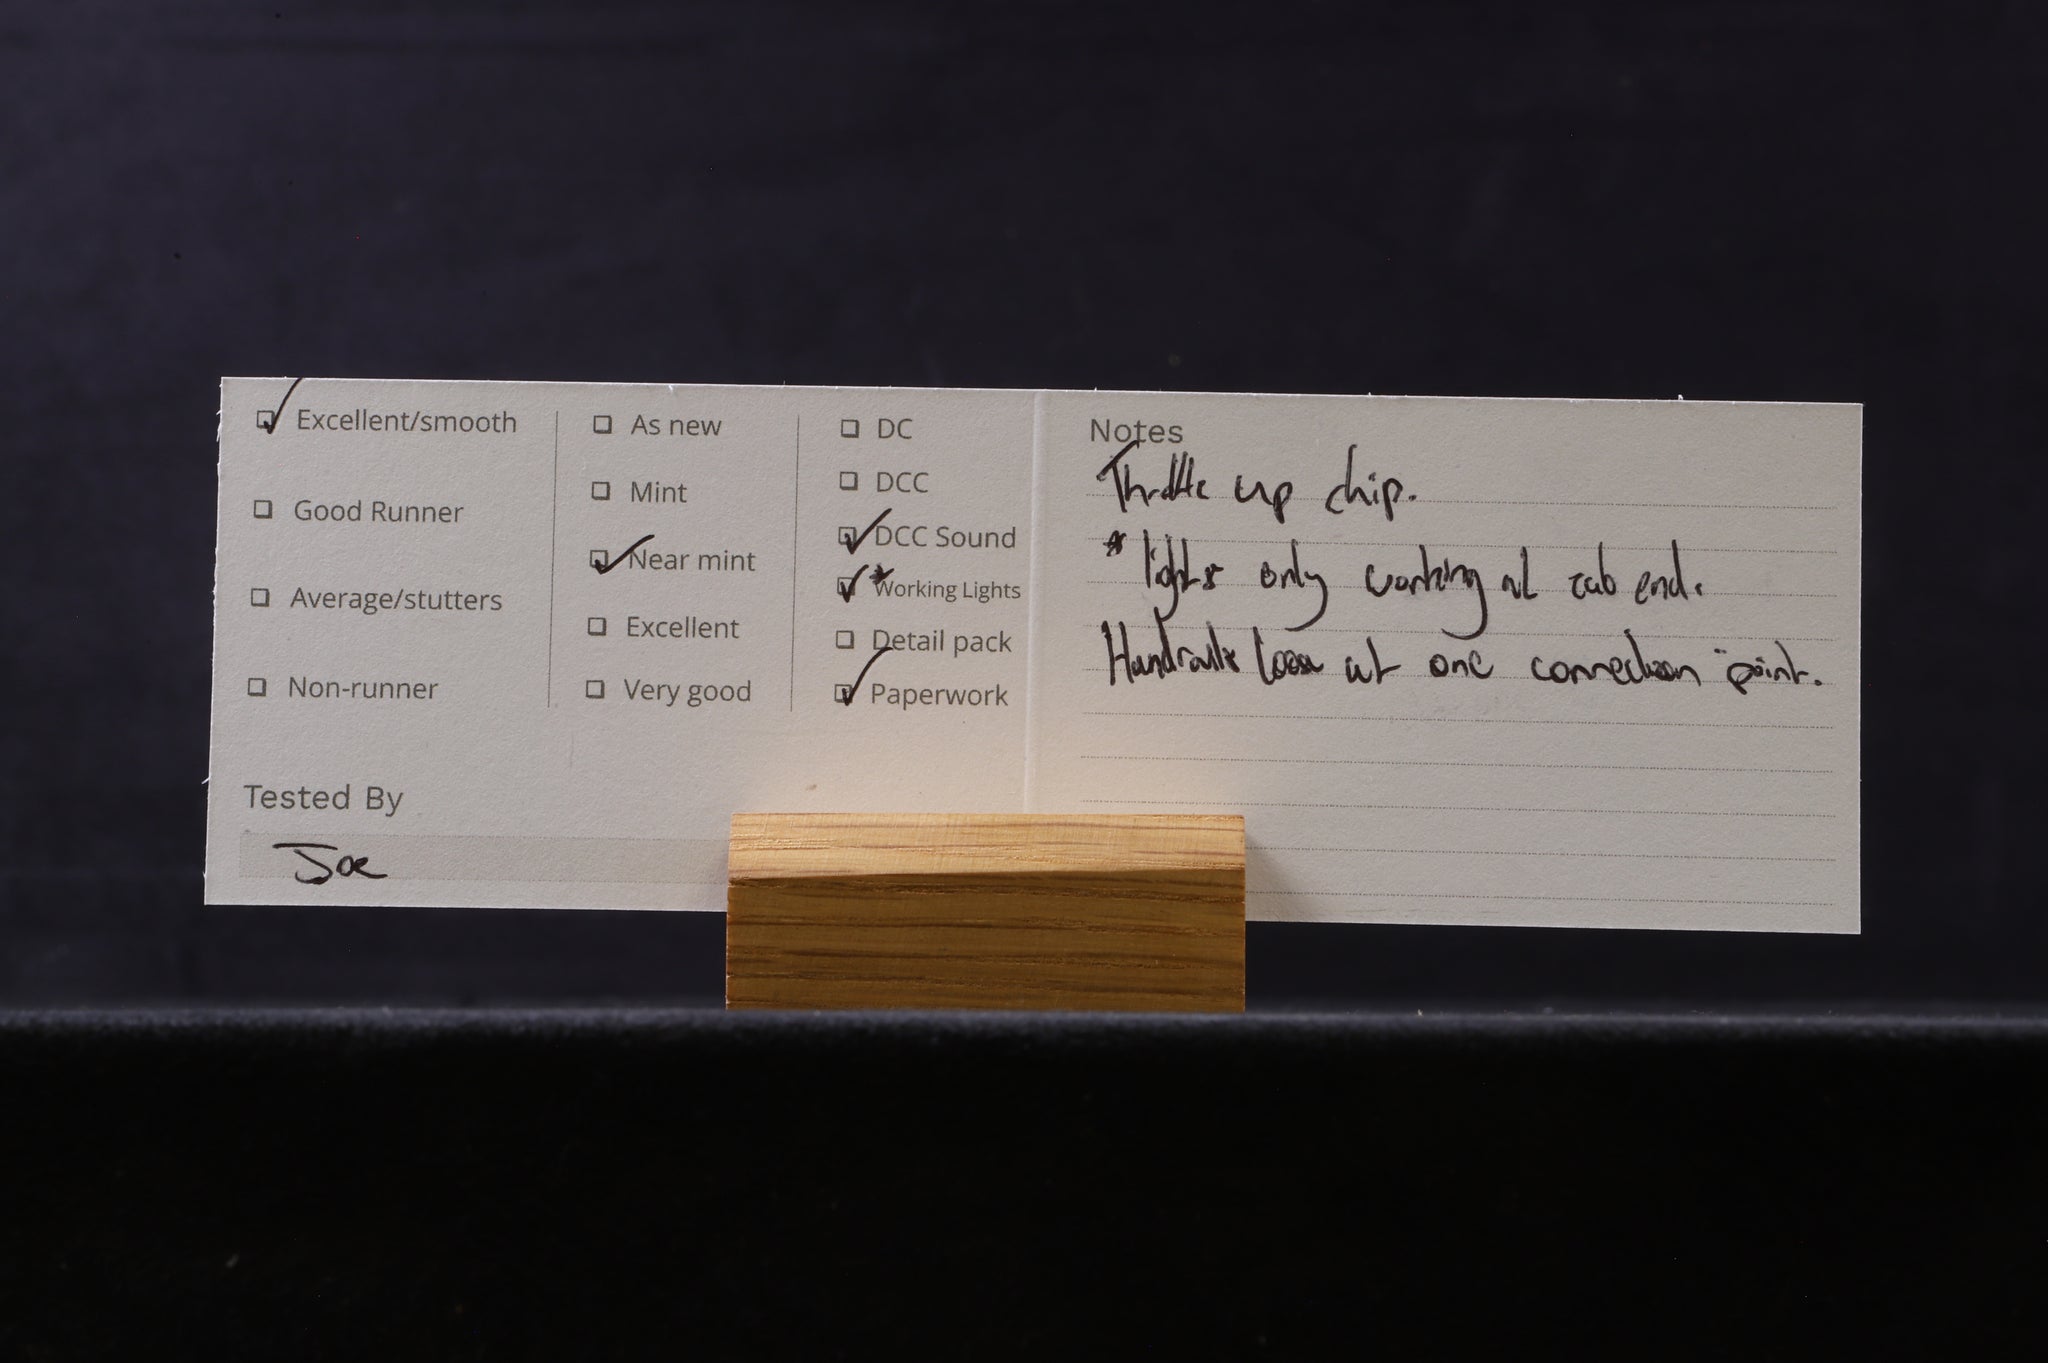 Excellent/smooth
Good Runner
Average/stutters
Non-runner
As new
Mint
Near mint
Excellent
Very good
DC
DCC
DCC Sound
*Working Lights
Detail pack
Paperwork
Tested By
Joe
Notes
Throttle up chip.
* lights only working at cab end.
Handrails loose at one connection point.